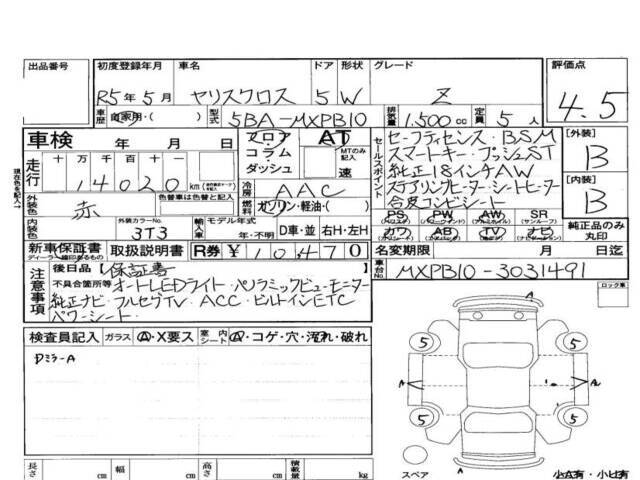 出品番号 初度登録年月 車名 ドア 形状 グレード 評価点
R5年5月 ヤリスクロス 5 W Z 4.5
車歴 自家用・( ) 型式 5BA-MXPB10 排気量 1.500cc 定員 5人
車検 年 月 日 フロア AT セールスポイント セーフティセンス・BSM [外装]
コラム MTのみ記入 スマートキー・プッシュST B
走行 十 万 千 百 十 一 ダッシュ 速 純正18インチAW
14020 km 冷房 AAC ステアリングヒーター・シートヒーター [内装]
現在色を記入 外装色 赤 色替車は色替と記入 燃料 ガソリン・軽油・( ) 合皮コンビシート B
PS PW AW SR
内装色 外装カラーNo. 3T3 輸入車 モデル年式 年・不明 D車・並 右H・左H カワ AB TV ナビ 純正品のみ丸印
新車保証書 取扱説明書 R券 ¥10470 名変期限 月 日迄
ディーラー印あるもの
注意事項 後日品 (保証書 車台No. MXPB10-3031491
不具合箇所等 オートLEDライト・パノラミックビューモニター ロック車
純正ナビ・フルセグTV・ACC・ビルトインETC
パワーシート
検査員記入 ガラス A・X要ス 室内 シート A・コゲ・穴・汚れ・破れ
Dミラ-A
5 5
A A
5 5
A
長さ cm 幅 cm 高さ cm 積載量 kg スペア 小A有・小U有